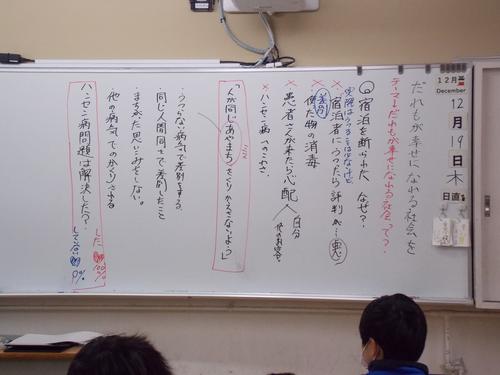 12月
December
12
月
19
日
木
日直
だれもが幸せになれる社会を
テーマ だれもが幸せになれる社会って?
宿泊を断られた なぜ?
× 宿泊者にうつったら評判が…悪
差別
× 使た物の消毒
× 患者さんが来たら心配
自分
他のお客
× ハンセン病へのこわさ
「人が同じあやまちをくりかえさないよう」
・うつらない病気で差別をする。
・同じ人間同士で差別したこと
・まちがた思いこみをしない。
他の病気でのかくりとする
ハンセン病問題は解決した?
した 100%
して会 0%